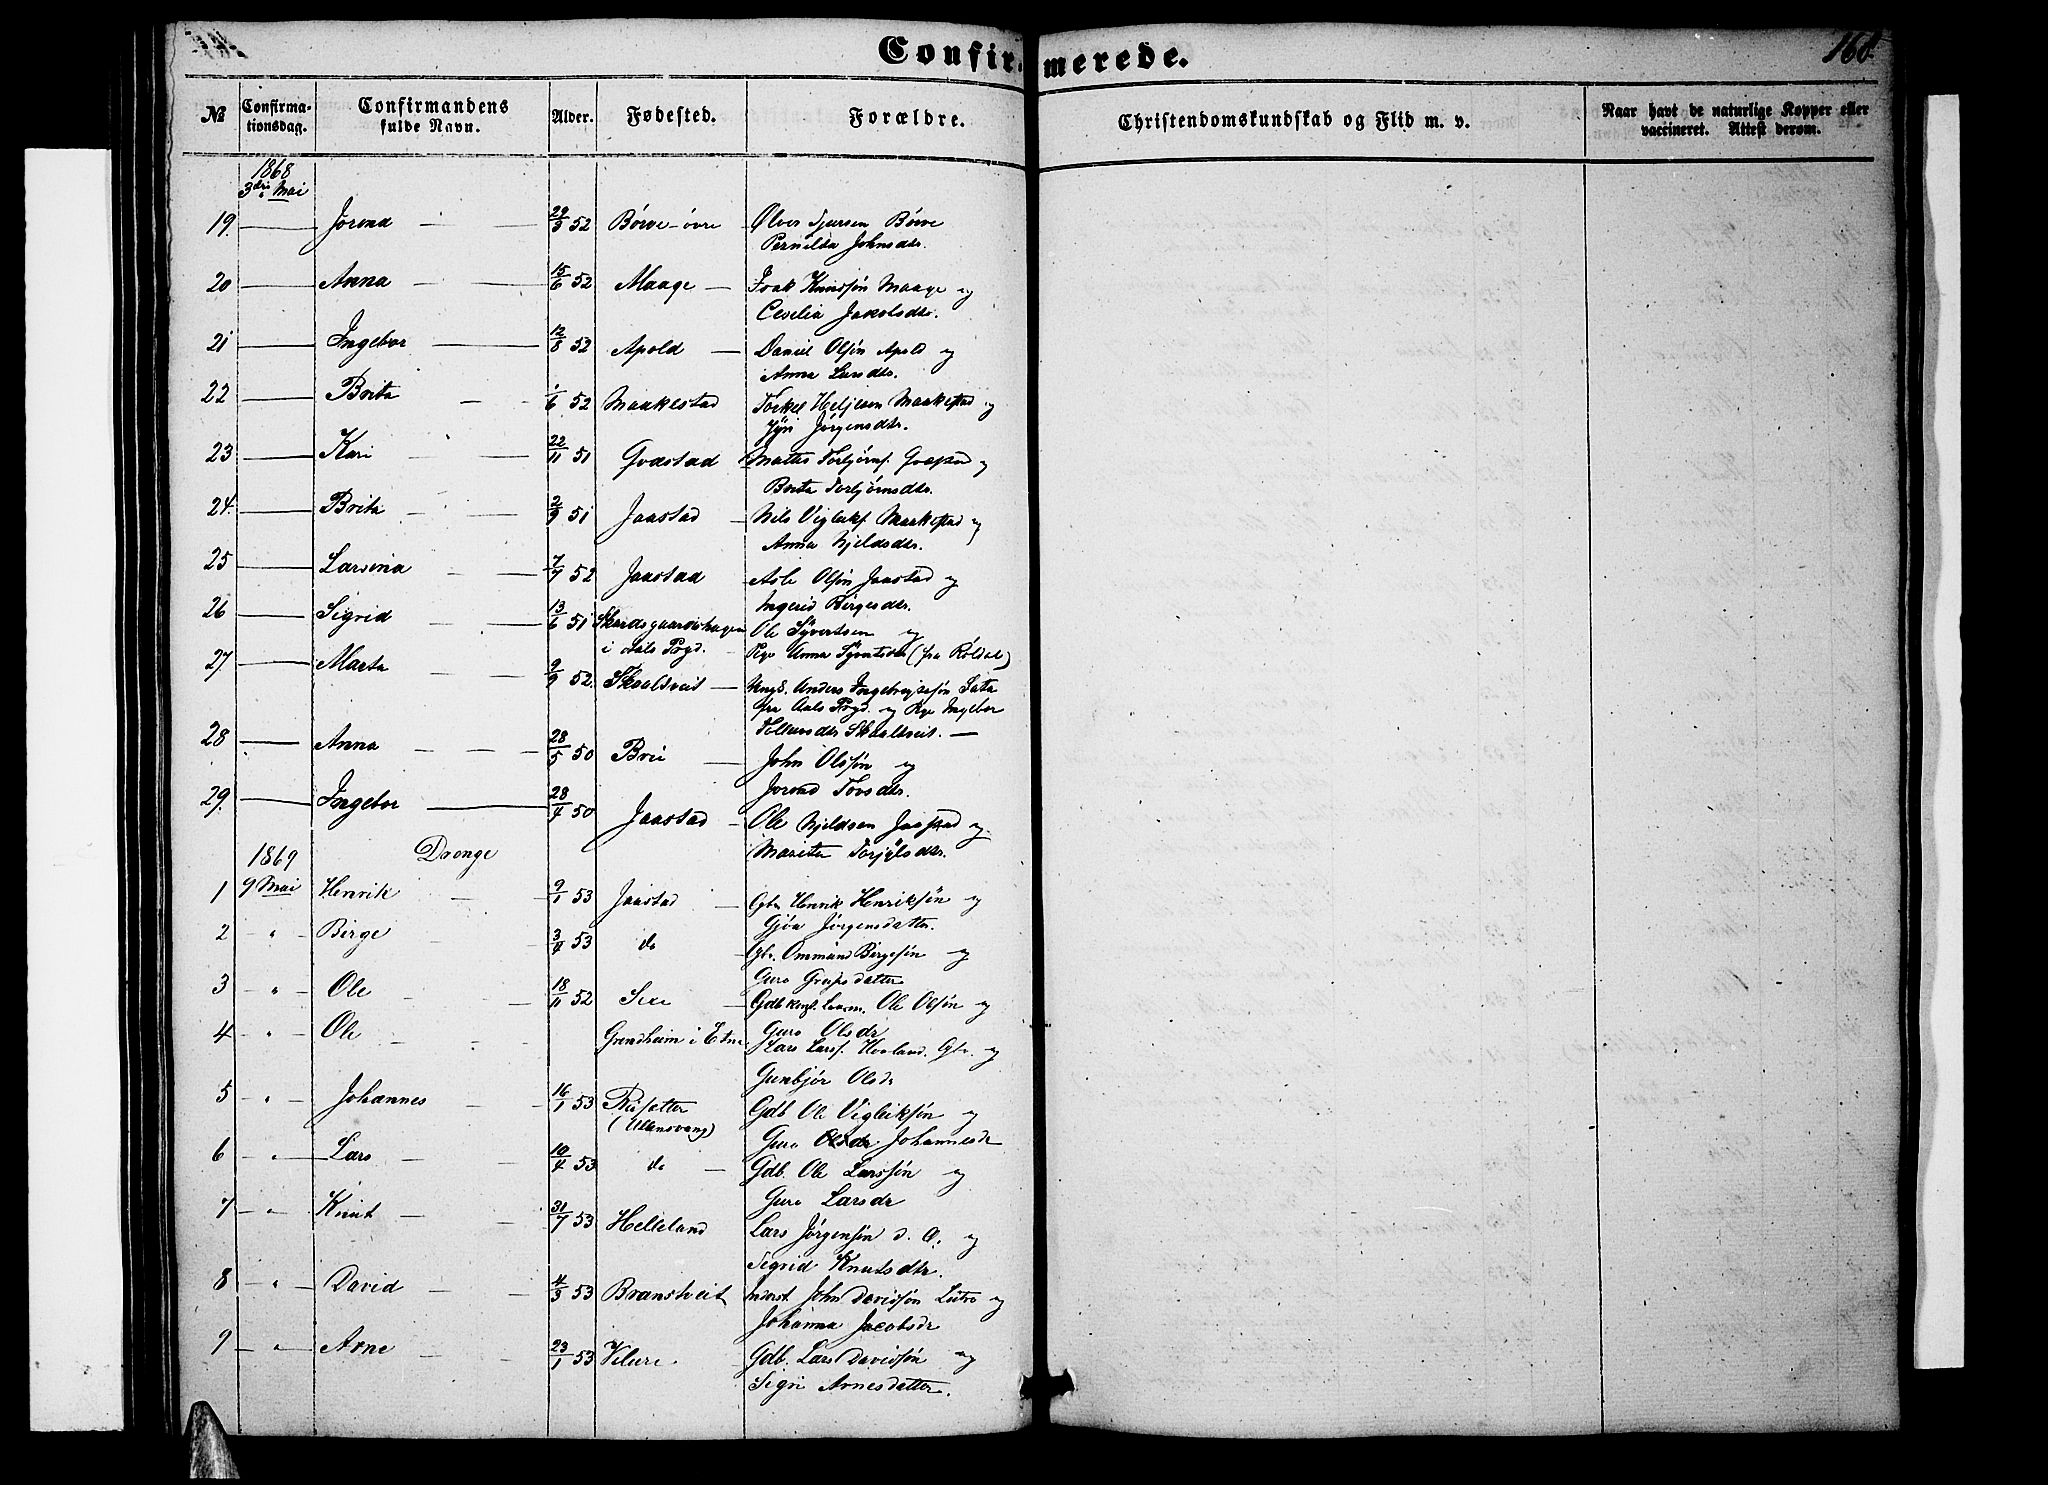 Confirmerede.
168
№ Confirma-tionsdag. Confirmandens fulde Navn. Alder. Fødested. Forældre. Christendomskundskab og Flid m. v. Naar havt de naturlige Kopper eller vaccineret. Attest derom.
1868
3die Mai
19. Jorond 29/3 52 Børve øvre Ølver Børve
Pernilda Johnsdtr.
20 Anna 15/6 52 Maage Isak Knudsøn Maage og
Cecilia Jakobsdtr.
21 Ingebor 12/8 52 Apold Daniel Olsøn Apold og
Anna Larsdtr.
22 Brita 1/6 52 Maakestad Torkel Heljesen Maakestad og
Jørgensdtr.
23 Kari 22/11 51 Godstad Mattis Torbjørns.
Brita Torbjørnsdtr.
24. Brita 2/9 51 Jaastad Nils Vigleiks. Maakestad og
Anna Njeldsdtr.
25 Larsina 7/7 52 Jaastad Asle Olsøn Jaastad og
Ingerid Birgesdtr.
26 Sigrid 13/6 51 Skardsgaardshagen Ole Syvertsen og
i Aals Prgd. Pge Anna (fra Røldal)
27 Marta 9/9 52. Skaaltveit Ungk. Anders Sata
fra Aals Prgd. og Pge Ingebor
Skaaltveit.
28 Anna 28/5 50 Brei John Olssøn og
Jorond Tovsdtr.
29. Ingebor 28/4 50 Jaastad Ole Njeldsen Jaastad og
Marita
1869 Drenge
1 9 Mai Henrik 9/1 53 Jaastad Gbr Henrik Henriksøn og
Gjøa Jørgensdatter.
2 " Birge 3/4 53 do Gbr. Ommund Birgesøn og
Guro Greipsdatter
3 " Ole 18/11 52 Sexe Ole Olsøn og
Guro Olsdr
4 " Ole Grindheim i Etne Lars Lars. Hovland. Gbr. og
Gunbjør Olsdr
5 " Johannes 16/1 53 Reisetter Gdb Ole Vigleiksøn og
(Ullensvang) Guro Johannesdr
6 " Lars 10/4 53 do Gdb. Ole Larssøn og
Guro Larsdr
7 " Knut 31/7 53 Helleland Lars Jørgensøn d. A. og
Sigrid Knutsdtr.
8 " David 4/3 53 Branstveit Inderst John Davidsøn Lutro og
Johanna Jacobsdr
9 " Arne 23/1 53 Velure Gdb. Lars Davidsøn og
Sigri Arnesdatter.